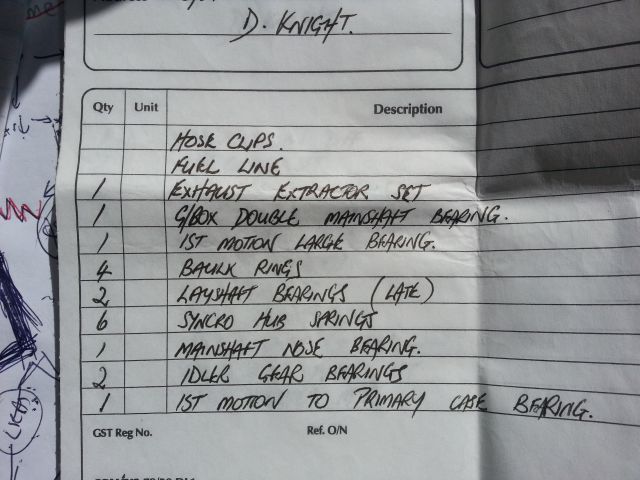 D. KNIGHT.
Qty Unit Description
HOSE CLIPS.
FUEL LINE
1 EXHAUST EXTRACTOR SET
1 G/BOX DOUBLE MAINSHAFT BEARING.
1 1ST MOTION LARGE BEARING.
4 BAULK RINGS
2 LAYSHAFT BEARINGS (LATE)
6 SYNCRO HUB SPRINGS
1 MAINSHAFT NOSE BEARING.
2 IDLER GEAR BEARINGS
1 1ST MOTION TO PRIMARY CASE BEARING.
GST Reg No. Ref. O/N